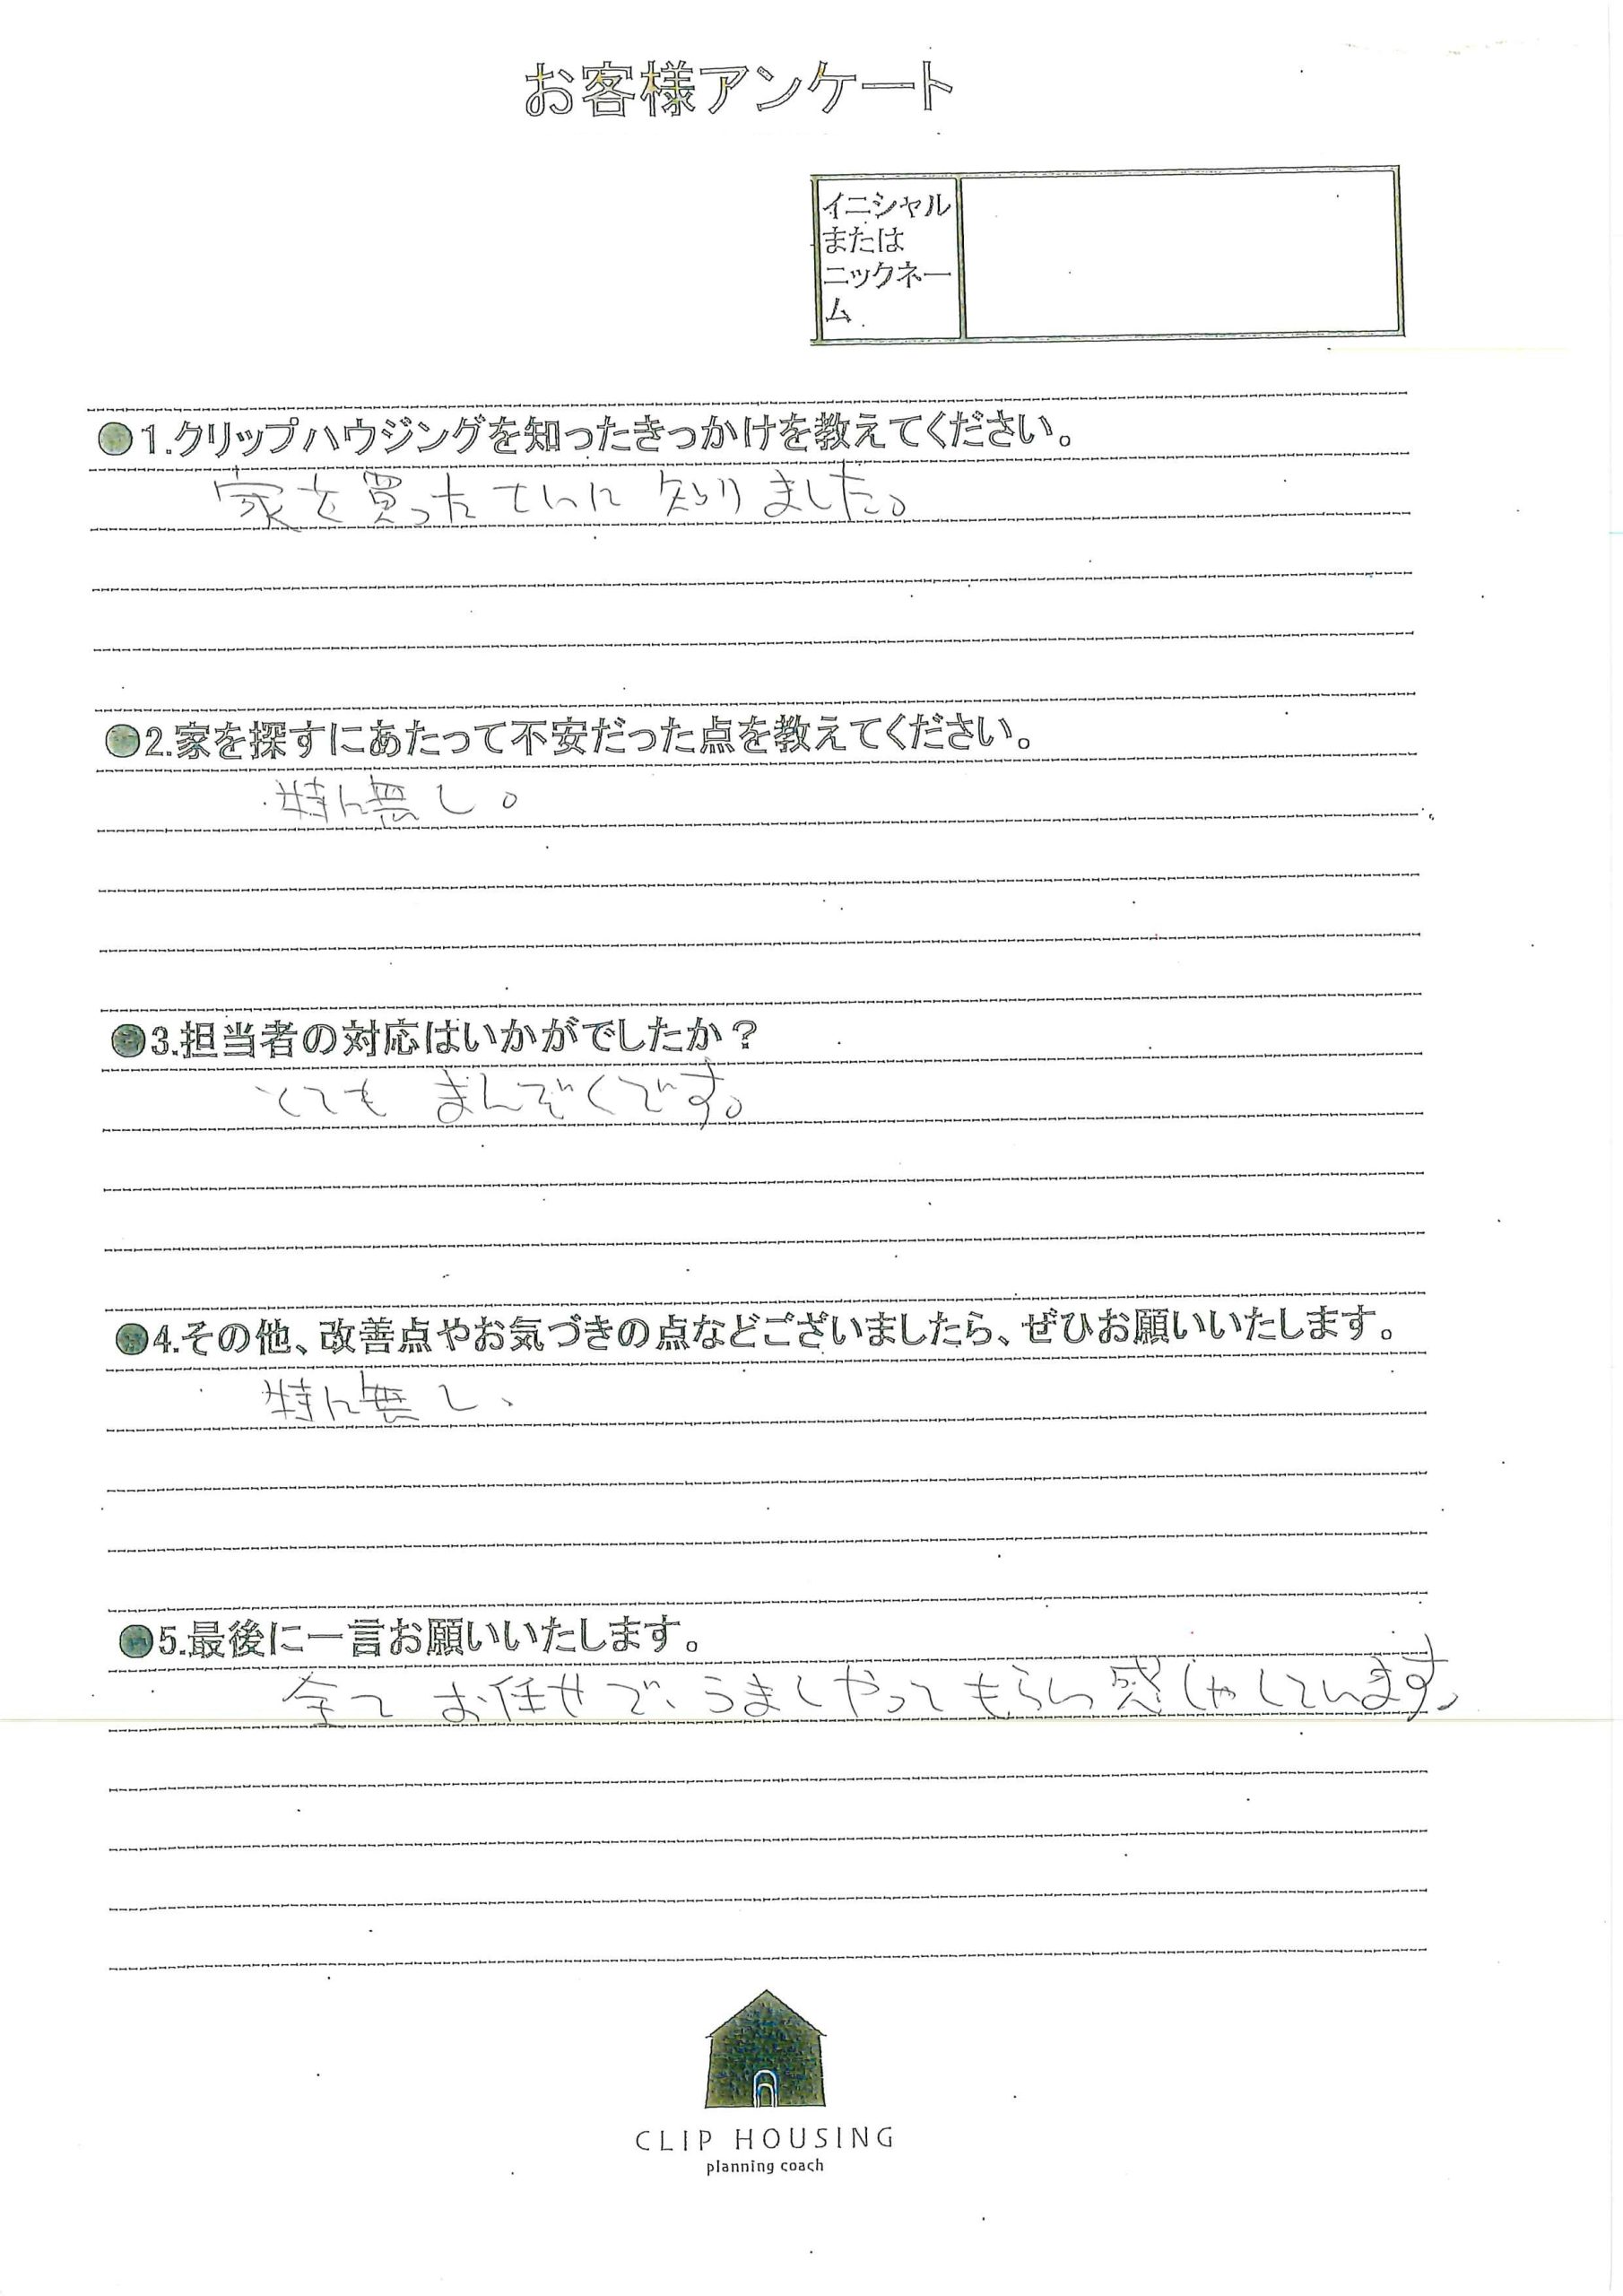 お客様アンケート
イニシャル
または
ニックネー
ム
●1.クリップハウジングを知ったきっかけを教えてください。
家を買った 知りました。
●2.家を探すにあたって不安だった点を教えてください。
特に無し。
●3.担当者の対応はいかがでしたか？
とても まんぞくです。
●4.その他、改善点やお気づきの点などございましたら、ぜひお願いいたします。
特に無し、
●5.最後に一言お願いいたします。
全て お任せで、うまくやってもらい感しゃしています。
CLIP HOUSING
planning coach